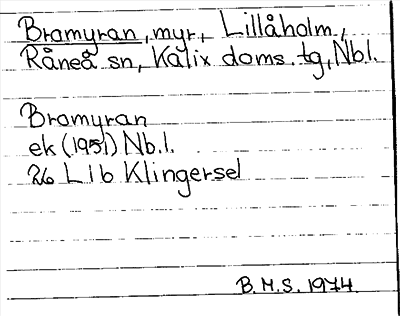 Bramyran, myr, Lillåholm,
Råneå sn, Kalix doms. tg, Nbl.
Bramyran
ek (1951) Nb.l.
26 L1b Klingersel
B.M.S. 1974.